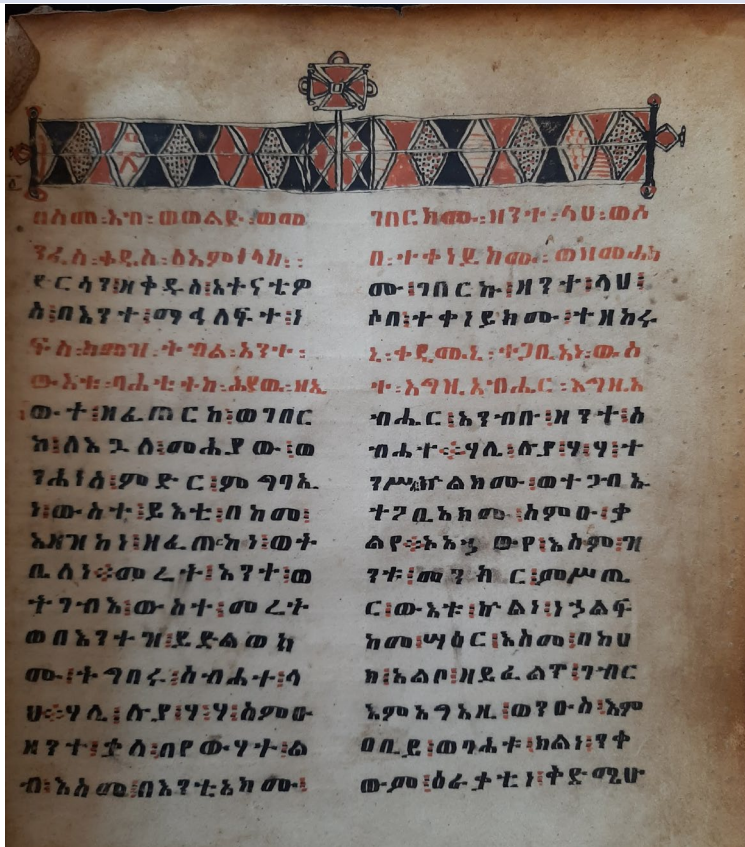 በስመ፡አብ፡ወወልድ፡ወመ
ንፈስ፡ቅዱስ፡፩አምላክ፡፡
ድርሳን፡ዘቅዱስ፡አትናቲዎ
ስ፡በእንተ፡ማኅለፍት፡ነ
ፍስ፡ከመዝ፡ትብል፡አንተ፡
ውእቱ፡ባሕቲትከ፡ሕያው፡ዘኢ
ውተ፡ዘፈጠርከ፡ወገበር
ከ፡ለእጓለ፡መሕያው፡ወ
ንሕነሰ፡ምድር፡ምግባኢ
ነ፡ውስተ፡ይእቲ፡በከመ፡
አዘዝከነ፡ዘፈጠርከነ፡ወት
ቢለነ፡መሬት፡አንተ፡ወ
ትገብእ፡ውስተ፡መሬት
ወበእንተዝ፡ይድልወክ
ሙ፡ትግበሩ፡ስብሐተ፡ላ
ሀ፡ሃሊ፡ሉያ፡ሃ፡ሃ፡ስምዑ
ዘንተ፡ቃለ፡በየውሃት፡ል
ብ፡እስመ፡በእንቲአክሙ፡
ገበርክሙ፡ዘንተ፡ላሀ፡ወሶ
በ፡ተቀነይክሙ፡ወዝመሐከ
ሙ፡ገበርኩ፡ዘንተ፡ላሀ፡
ሶበ፡ተቀነይክሙ፡ተዘከሩ
ኒ፡ቀዲሙኒ፡ተጋቢአነ፡ውስ
ተ፡እግዚአብሔር፡እግዚአ
ብሔር፡አንብቡ፡ዘንተ፡ስ
ብሐተ፡ሃሊ፡ሉያ፡ሃ፡ሃ፡ተ
ንሥኡ፡ልክሙ፡ወተጋብኡ
ተጋቢአክሙ፡ስምዑ፡ቃ
ልየ፡ኦአኃውየ፡እስም፡ዝ
ንቱ፡መንክር፡መሥጢ
ር፡ውእቱ፡ኵልነ፡ነኃልፍ
ከመ፡ሣዕር፡እስመ፡በከሀ
ክ፡አልቦ፡ዘይፈልጥ፡ገብር
እምእግእዚ፡ወንዑስ፡እም
ዐቢይ፡ወባሕቱ፡ክልነ፡ንቀ
ውም፡ዕራቃቲነ፡ቅድሜሁ